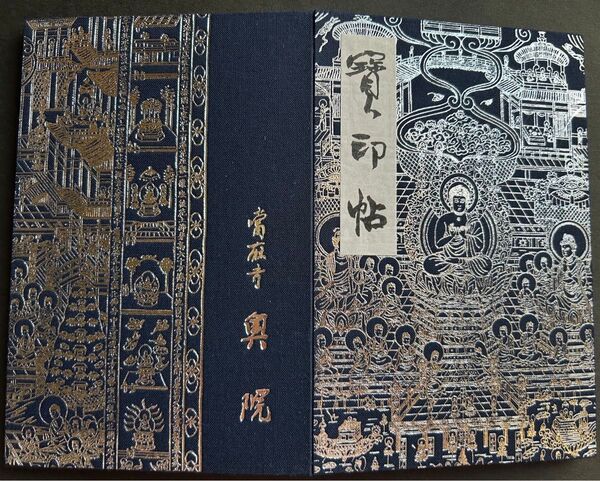 寶印帖
當麻寺 奥院